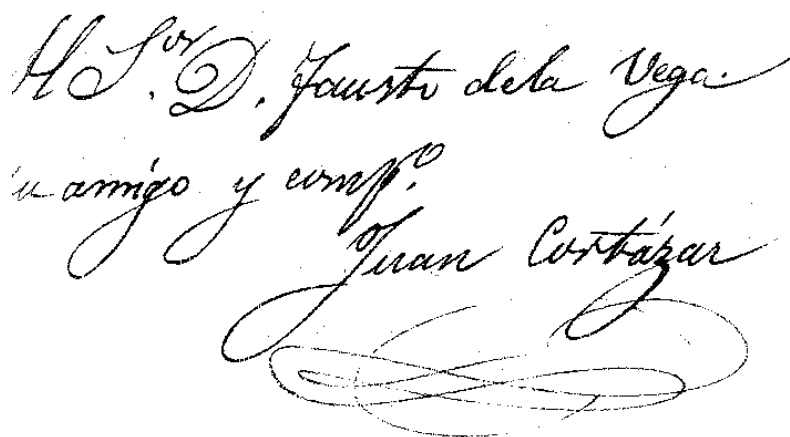 Al S.or D. Fausto dela Vega.
su amigo y comp.o
Juan Cortázar